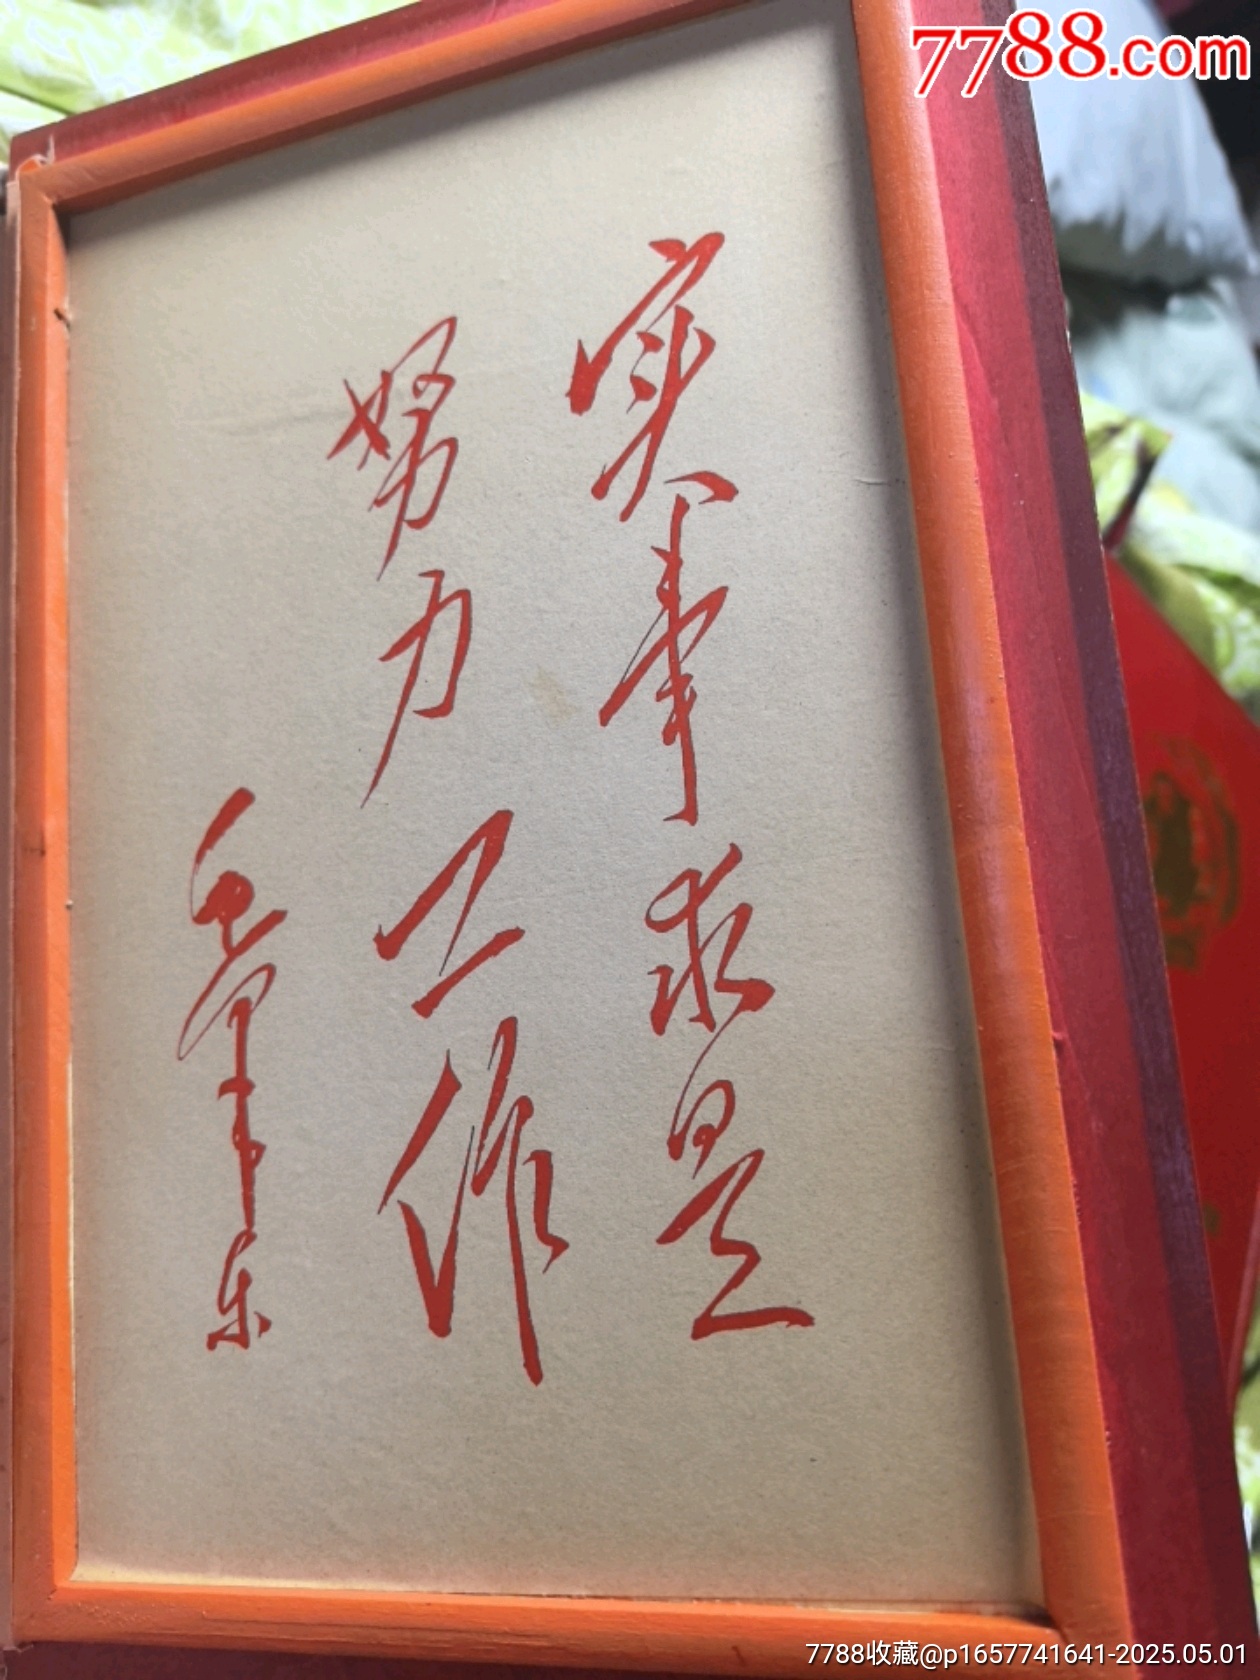 7788.com
实事求是
努力工作
毛泽东
7788收藏@p1657741641-2025.05.01